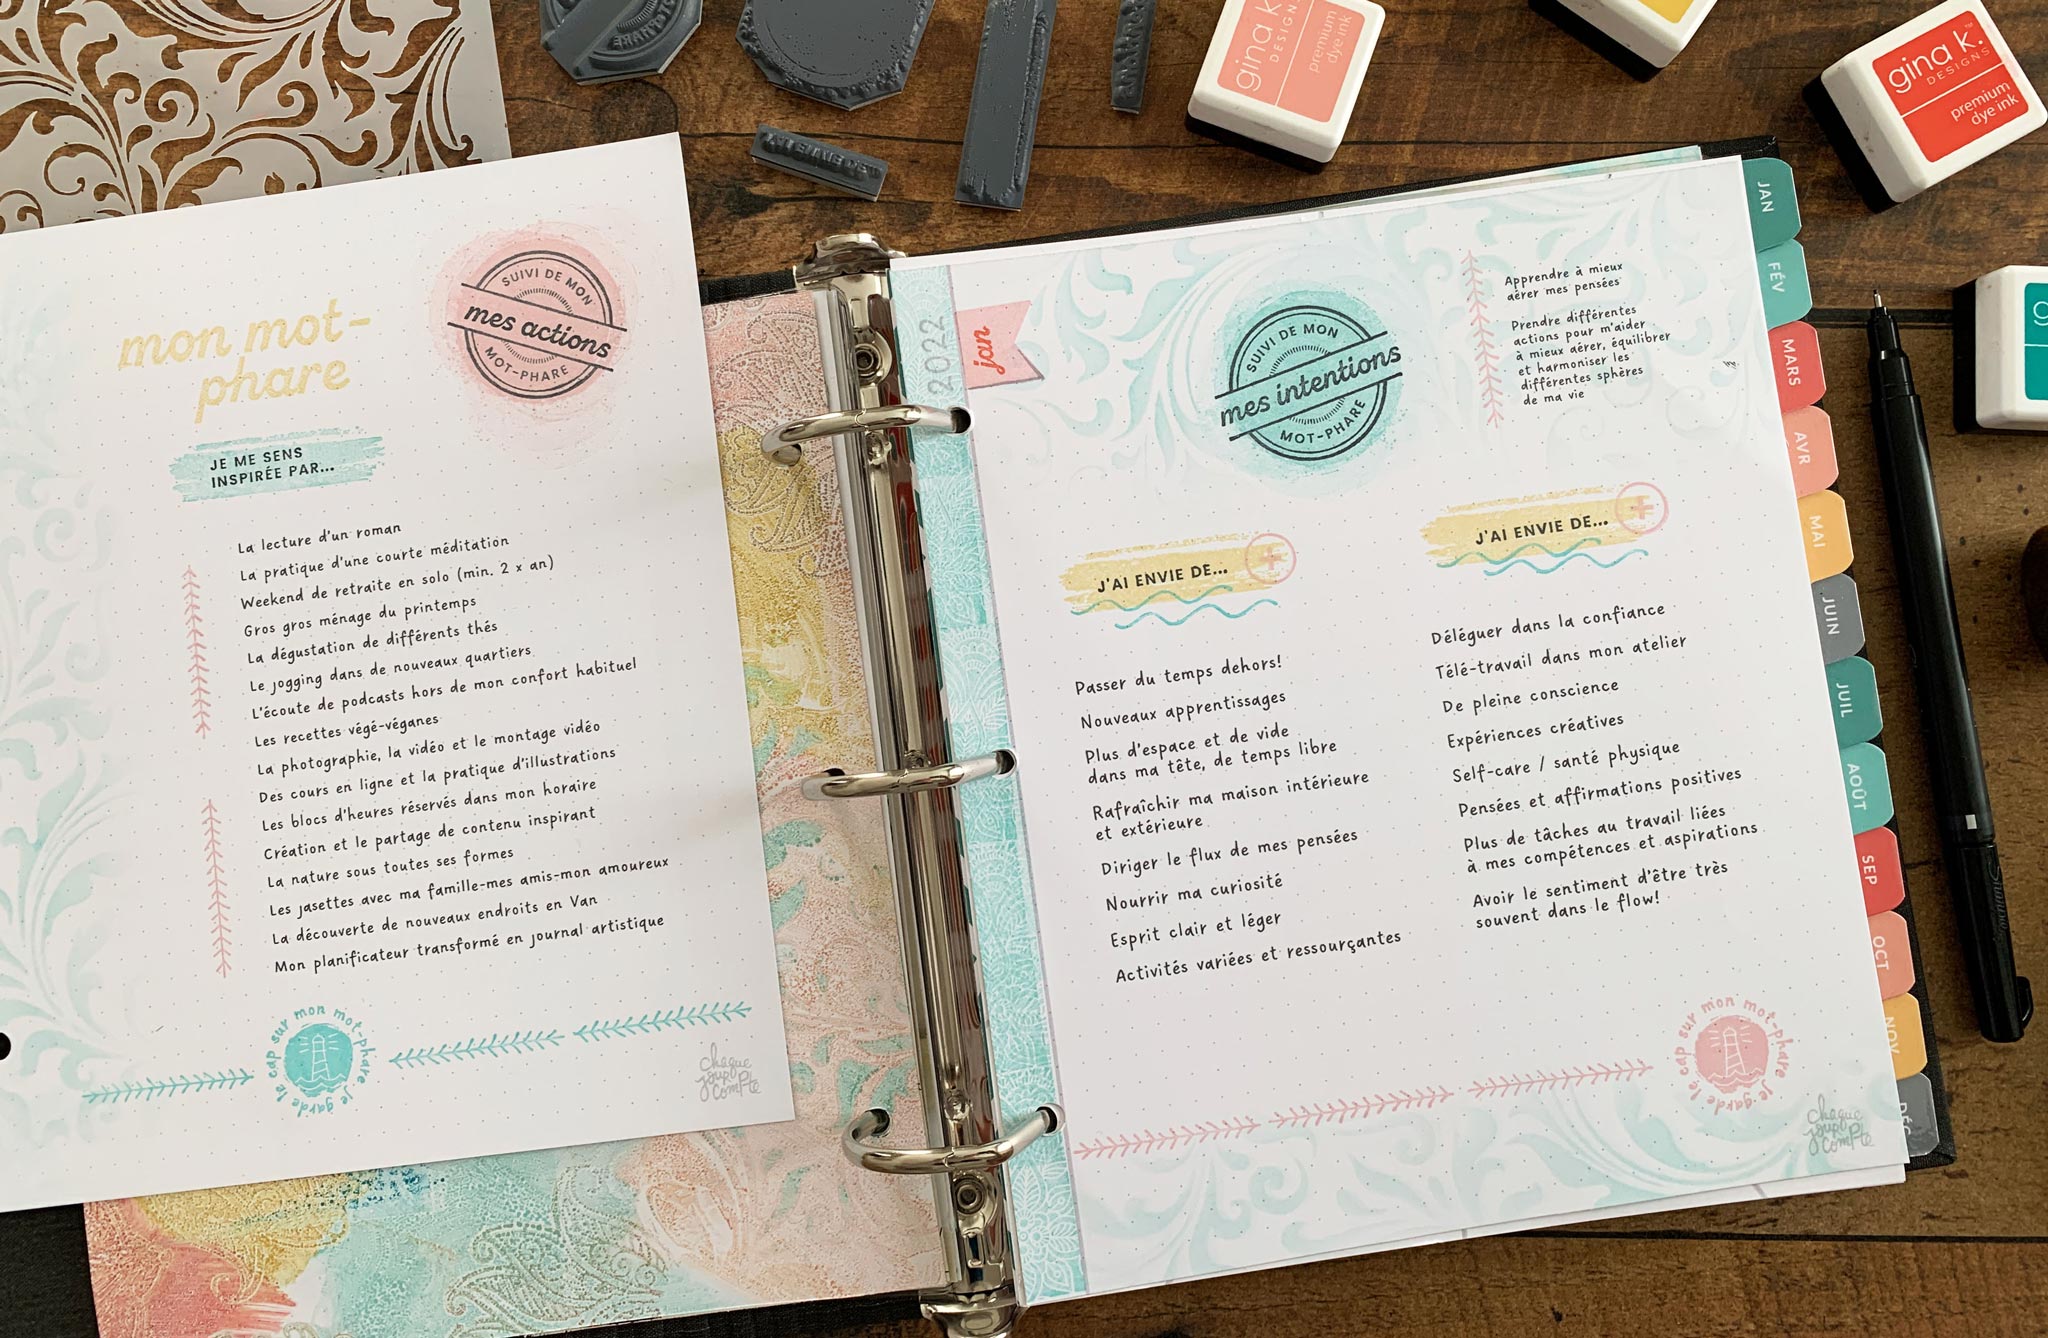 gina k.
DESIGNS
premium
dye ink
gina k.
DESIGNS
premium
dye ink
g
mon mot-
phare
SUIVI DE MON
mes actions
MOT-PHARE
JE ME SENS
INSPIRÉE PAR...
La lecture d'un roman
La pratique d'une courte méditation
Weekend de retraite en solo (min. 2 x an)
Gros gros ménage du printemps
La dégustation de différents thés
Le jogging dans de nouveaux quartiers
L'écoute de podcasts hors de mon confort habituel
Les recettes végé-véganes
La photographie, la vidéo et le montage vidéo
Des cours en ligne et la pratique d'illustrations
Les blocs d'heures réservés dans mon horaire
Création et le partage de contenu inspirant
La nature sous toutes ses formes
Les jasettes avec ma famille-mes amis-mon amoureux
La découverte de nouveaux endroits en Van
Mon planificateur transformé en journal artistique
je garde le cap sur mon mot-phare
chaque
jour
compte
2022
jan
SUIVI DE MON
mes intentions
MOT-PHARE
Apprendre à mieux
aérer mes pensées
Prendre différentes
actions pour m'aider
à mieux aérer, équilibrer
et harmoniser les
différentes sphères
de ma vie
J'AI ENVIE DE...
Passer du temps dehors!
Nouveaux apprentissages
Plus d'espace et de vide
dans ma tête, de temps libre
Rafraîchir ma maison intérieure
et extérieure
Diriger le flux de mes pensées
Nourrir ma curiosité
Esprit clair et léger
Activités variées et ressourçantes
J'AI ENVIE DE...
Déléguer dans la confiance
Télé-travail dans mon atelier
De pleine conscience
Expériences créatives
Self-care / santé physique
Pensées et affirmations positives
Plus de tâches au travail liées
à mes compétences et aspirations
Avoir le sentiment d'être très
souvent dans le flow!
je garde le cap sur mon mot-phare
chaque
jour
compte
JAN
FÉV
MARS
AVR
MAI
JUIN
JUIL
AOÛT
SEP
OCT
NOV
DÉC